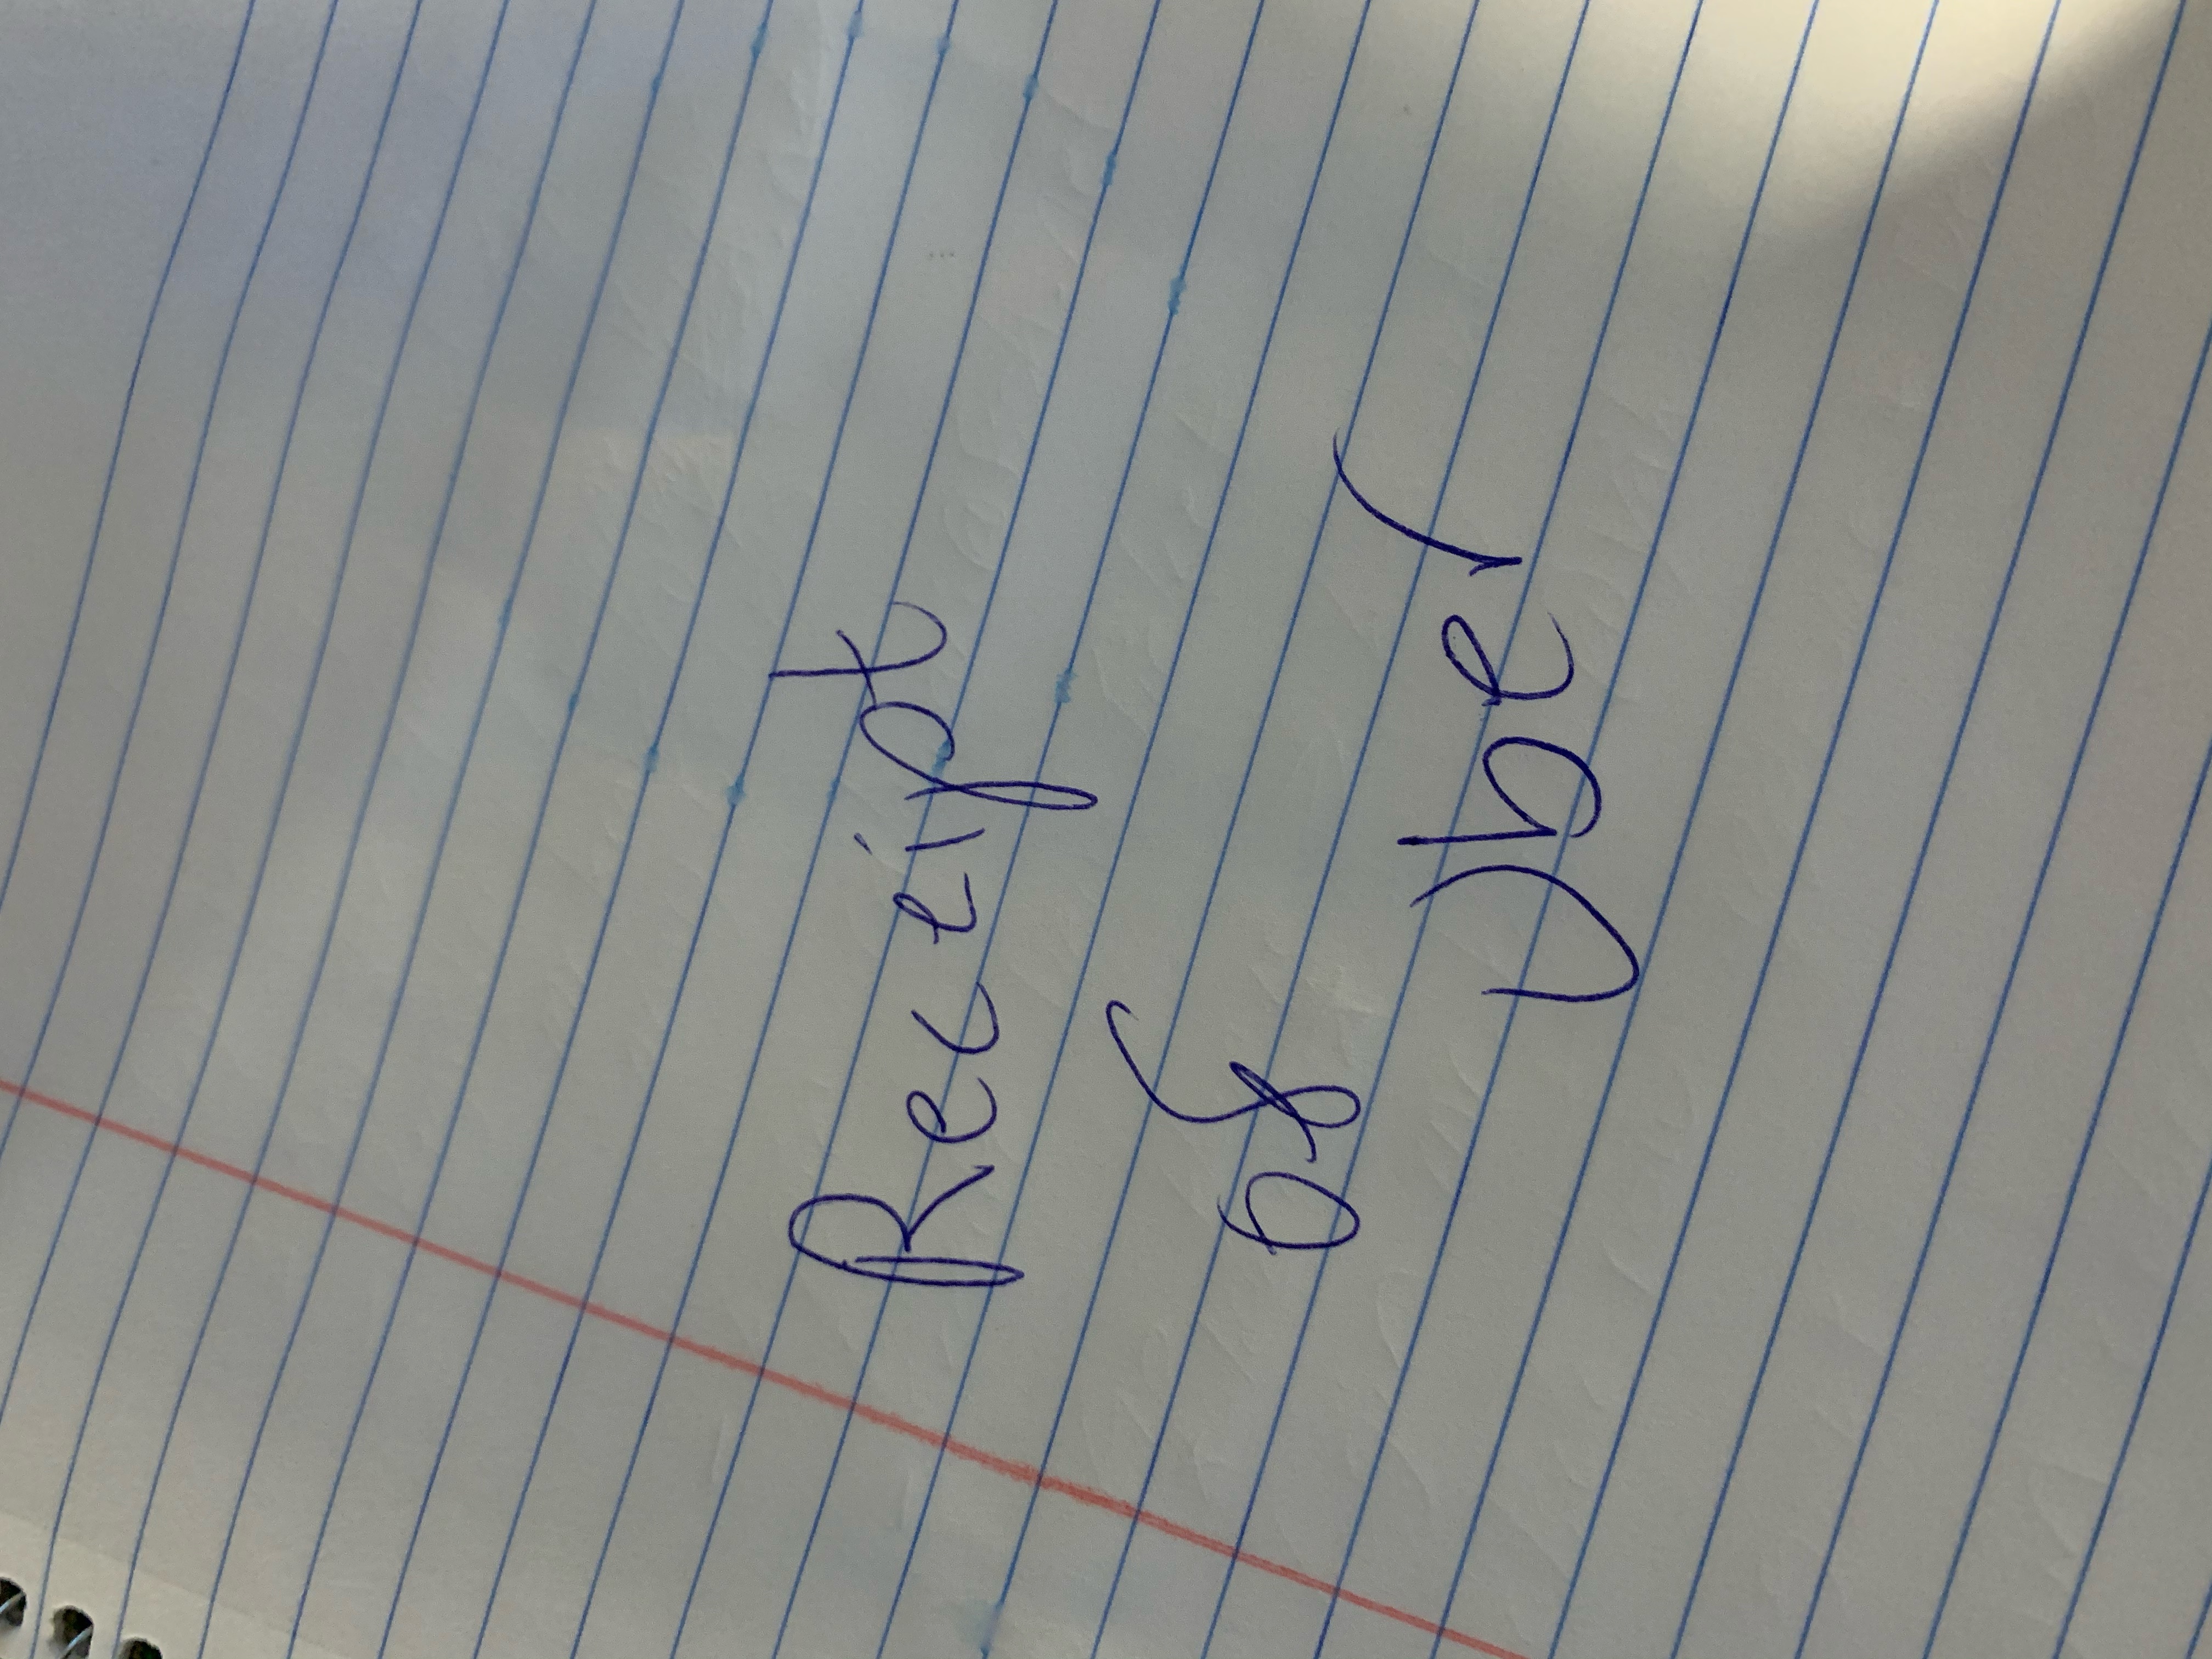 Receipt
of
Uber